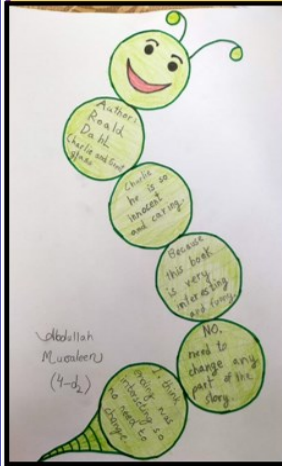 Author:
Roald
Dahl
Charlie and Great
glass
Charlie
he is so
innocent
and caring.
Because
this book
is very
interesting
and funny.
NO,
need to
change any
part of the
story.
I think
ending was
interesting so
no need to
change.
Abdullah
(4-d2)